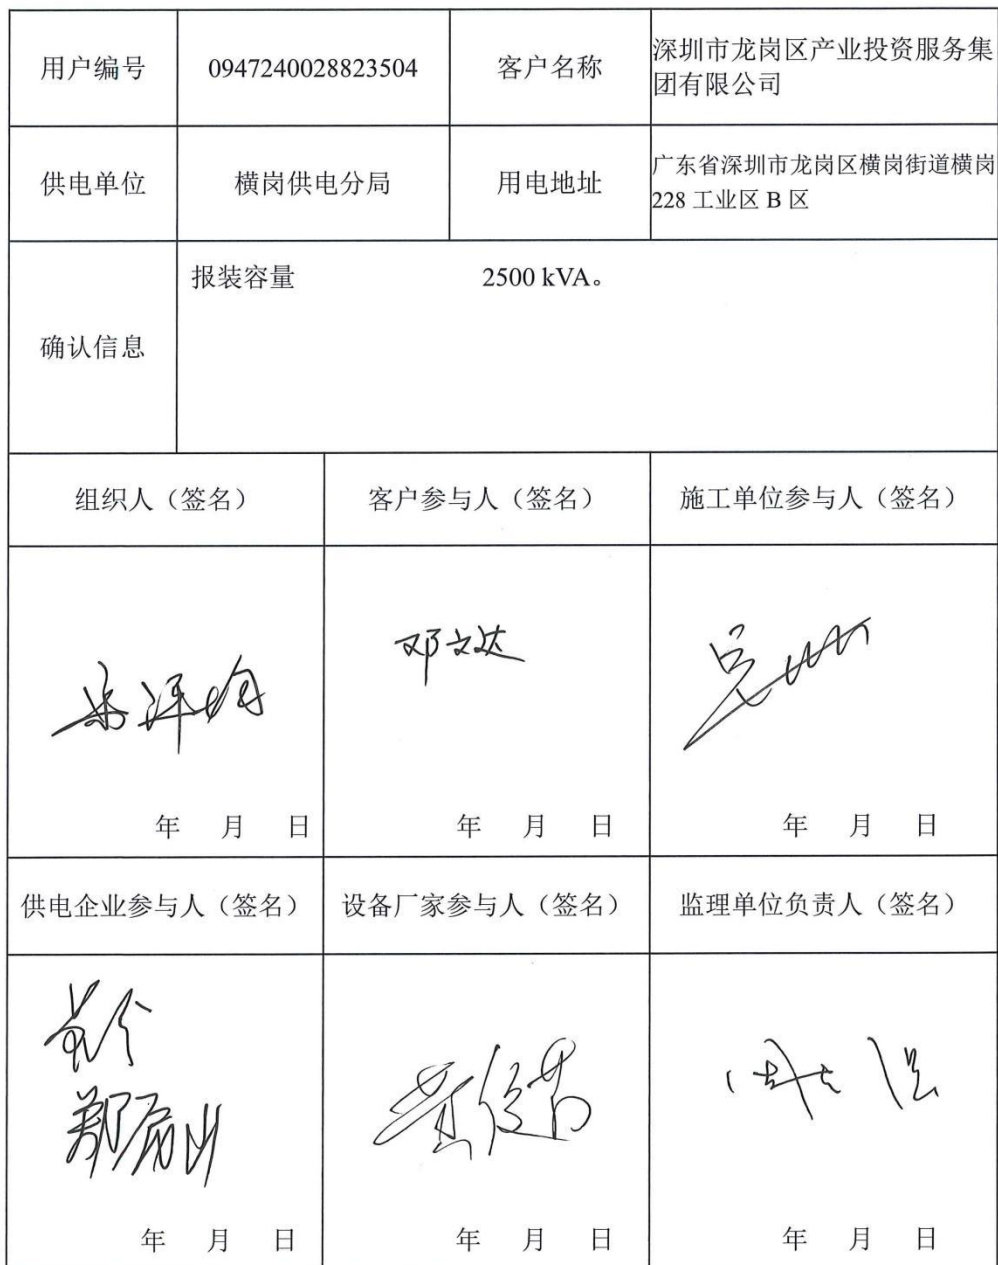 用户编号
0947240028823504
客户名称
深圳市龙岗区产业投资服务集
团有限公司
供电单位
横岗供电分局
用电地址
广东省深圳市龙岗区横岗街道横岗
228 工业区 B 区
确认信息
报装容量 2500 kVA。
组织人（签名）
客户参与人（签名）
施工单位参与人（签名）
邓文达
年 月 日
年 月 日
年 月 日
供电企业参与人（签名）
设备厂家参与人（签名）
监理单位负责人（签名）
年 月 日
年 月 日
年 月 日